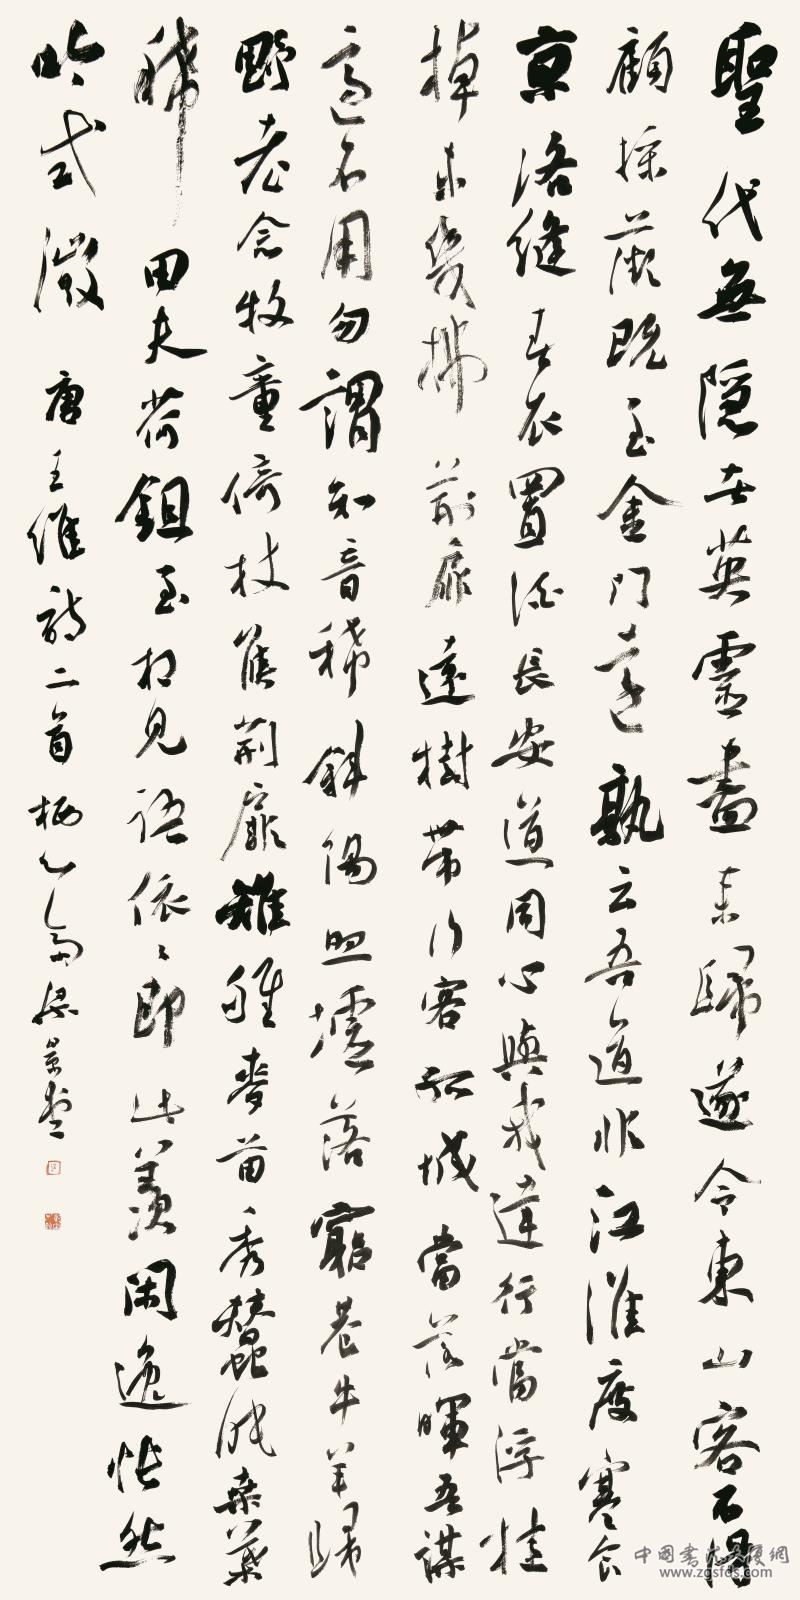 聖代無隱者英靈盡來歸遂令東山客不得
顧採薇既至金門遠孰云吾道非江淮度寒食
京洛縫春衣置酒長安道同心與我違行當浮桂
棹未幾拂荊扉遠樹帶行客孤城當落暉吾謀
適不用勿謂知音稀斜陽照墟落窮巷牛羊歸
野老念牧童倚杖候荊扉雉雊麥苗秀蠶眠桑葉
稀田夫荷鉏至相見語依〻即此羨閑逸悵然
吟式微 唐王維詩二首
www.zgsfds.com